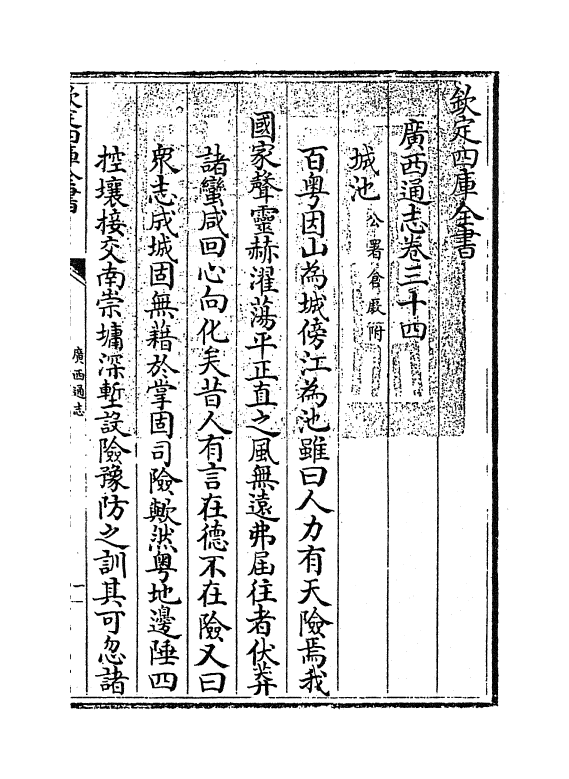 欽定四庫全書
廣西通志卷三十四
城池公署倉厫附
百粤因山為城傍江為池雖曰人力有天險焉我
國家聲靈赫濯蕩平正直之風無遠弗届往者伏莽
諸蠻咸回心向化矣昔人有言在德不在險又曰
衆志成城固無藉於掌固司險歟然粤地邊陲四
控壤接交南崇墉深塹設險豫防之訓其可忽諸
廣西通志
一